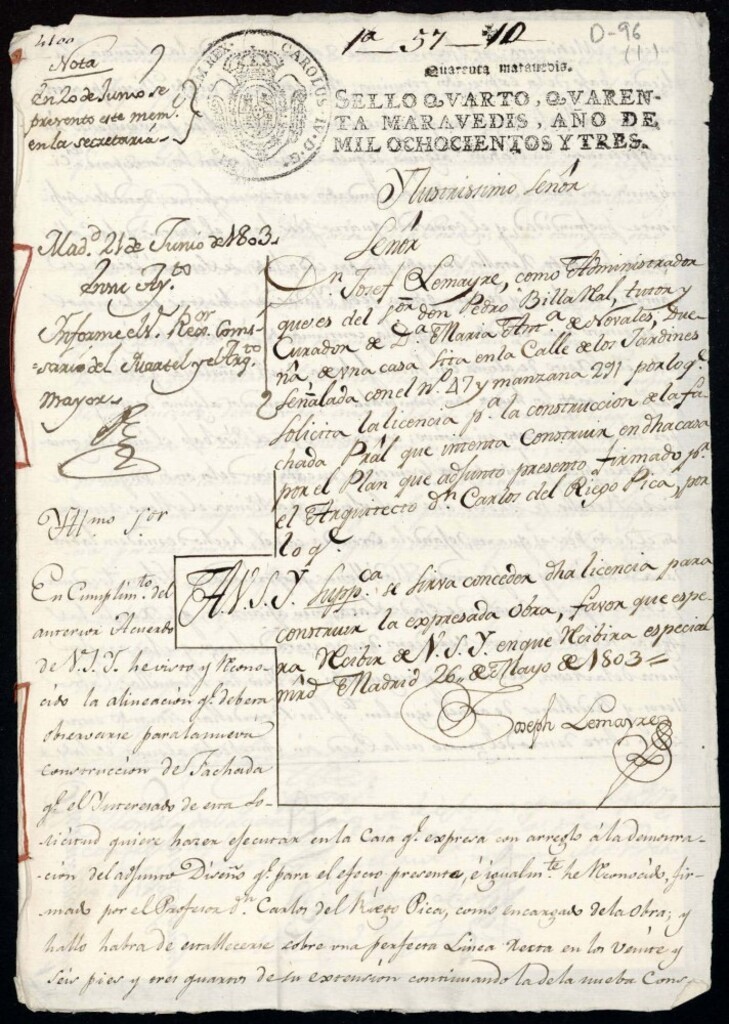 1ª 57 10
D-96
(1)
Quarenta maravedis.
SELLO QVARTO, QVAREN-
TA MARAVEDIS, AÑO DE
MIL OCHOCIENTOS Y TRES.
CAROLUS IV D. G.
Nota
En 20 de Junio se
presento este mem.
en la secretaria
Yllustrissimo Señor
Señor
Dn. Josef Lemayre, como Administrador
que es del Sor. don Pedro Billa Nal, tutor y
Curador de Dª Maria Antª de Novales, Due
ña, de vna casa sita en la Calle de los Jardines
señalada con el nº 47 y manzana 291 por lo q.
solicita la licencia pª la construccion de la fa
chada Pral que intenta Construir en dha casa
por el Plan que adjunto presento firmado pr.
el Arquitecto dn Carlos del Riego Pica, por
lo q.
A V. S. Y. Suppca se sirva conceder dha licencia para
construir la expresada obra, favor que espe-
ra Recibir de V. S. Y. en que Recibira especial
mrd Madrid 26 de Mayo de 1803=
Joseph Lemayre
Madd. 21 de Junio de 1803.
Informe el Sr. Regor. Comi-
sario del Quartel y el Arqto
mayor
Yllmo Sor
En Cumplimto. del
anterior Acuerdo
de V. S. Y. he visto y Recono
cido la alineacion q. debera
observarse para la nueva
construccion de Fachada
q. el Interesado de esta So-
licitud quiere hazer executar en la Casa q. expresa con arreglo á la demostra-
cion del adjunto Diseño q. para el efecto presenta, é igualmte. he Reconocido, fir-
mado por el Profesor dn. Carlos del Riego Pica, como encargado de la Obra; y
hallo habra de establecerse sobre vna perfecta Linea Recta en los veinte y
seis pies y tres quartos de su extension continuando la de la nueba Cons